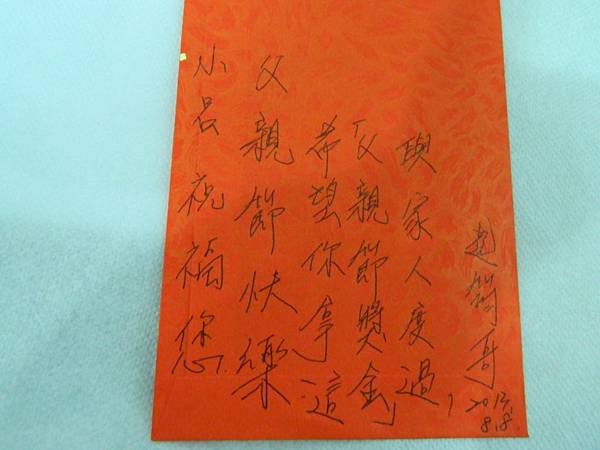 小呂祝福您.
父親節快樂
希望你拿這
「父親節獎金」
與家人度過,
建 哥
2013
8.8.